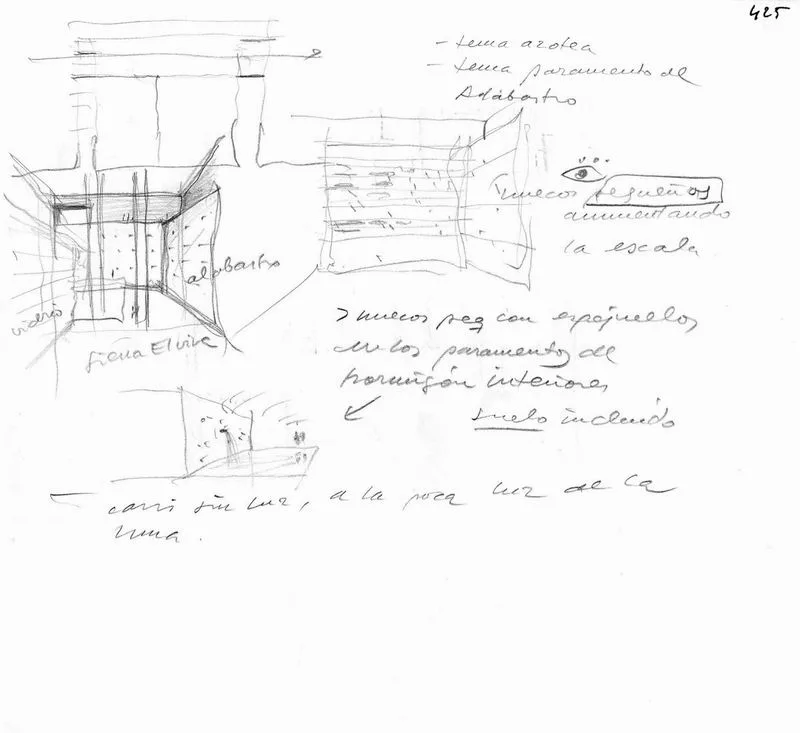 425
- tema azotea
- tema paramento de
Alabastro
huecos pequeños
aumentando
la escala
alabastro
vidrio
Sierra Elvira
> huecos peq con espejuelos
en los paramentos de
hormigón interiores
suelo incluido
- casi sin luz, a la poca luz de la
luna.